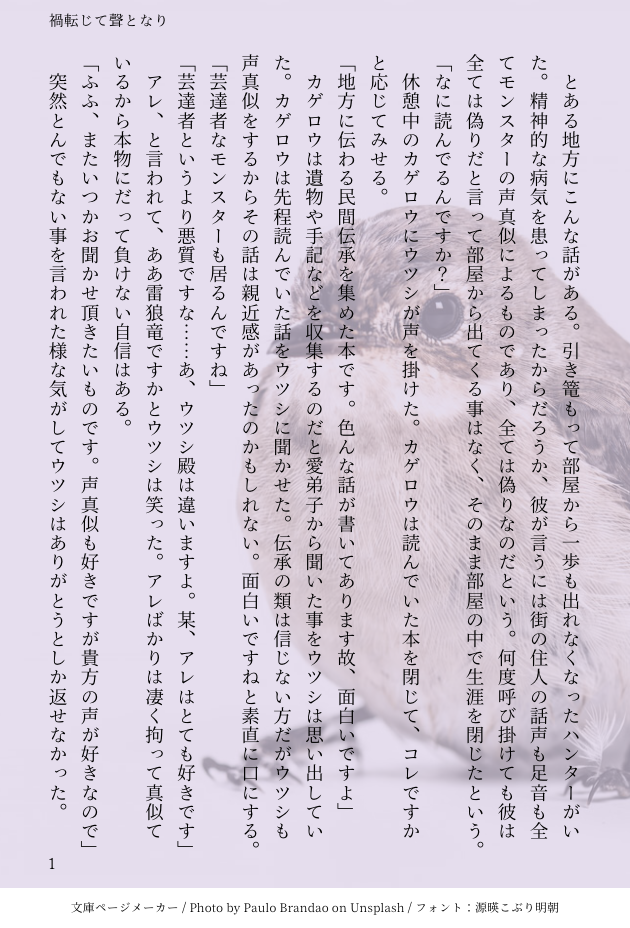 禍転じて聲となり
　とある地方にこんな話がある。引き篭もって部屋から一歩も出れなくなったハンターがい
た。精神的な病気を患ってしまったからだろうか、彼が言うには街の住人の話声も足音も全
てモンスターの声真似によるものであり、全ては偽りなのだという。何度呼び掛けても彼は
全ては偽りだと言って部屋から出てくる事はなく、そのまま部屋の中で生涯を閉じたという。
「なに読んでるんですか？」
　休憩中のカゲロウにウツシが声を掛けた。カゲロウは読んでいた本を閉じて、コレですか
と応じてみせる。
「地方に伝わる民間伝承を集めた本です。色んな話が書いてあります故、面白いですよ」
　カゲロウは遺物や手記などを収集するのだと愛弟子から聞いた事をウツシは思い出してい
た。カゲロウは先程読んでいた話をウツシに聞かせた。伝承の類は信じない方だがウツシも
声真似をするからその話は親近感があったのかもしれない。面白いですねと素直に口にする。
「芸達者なモンスターも居るんですね」
「芸達者というより悪質ですな……あ、ウツシ殿は違いますよ。某、アレはとても好きです」
　アレ、と言われて、ああ雷狼竜ですかとウツシは笑った。アレばかりは凄く拘って真似て
いるから本物にだって負けない自信はある。
「ふふ、またいつかお聞かせ頂きたいものです。声真似も好きですが貴方の声が好きなので」
　突然とんでもない事を言われた様な気がしてウツシはありがとうとしか返せなかった。
1
文庫ページメーカー / Photo by Paulo Brandao on Unsplash / フォント：源暎こぶり明朝